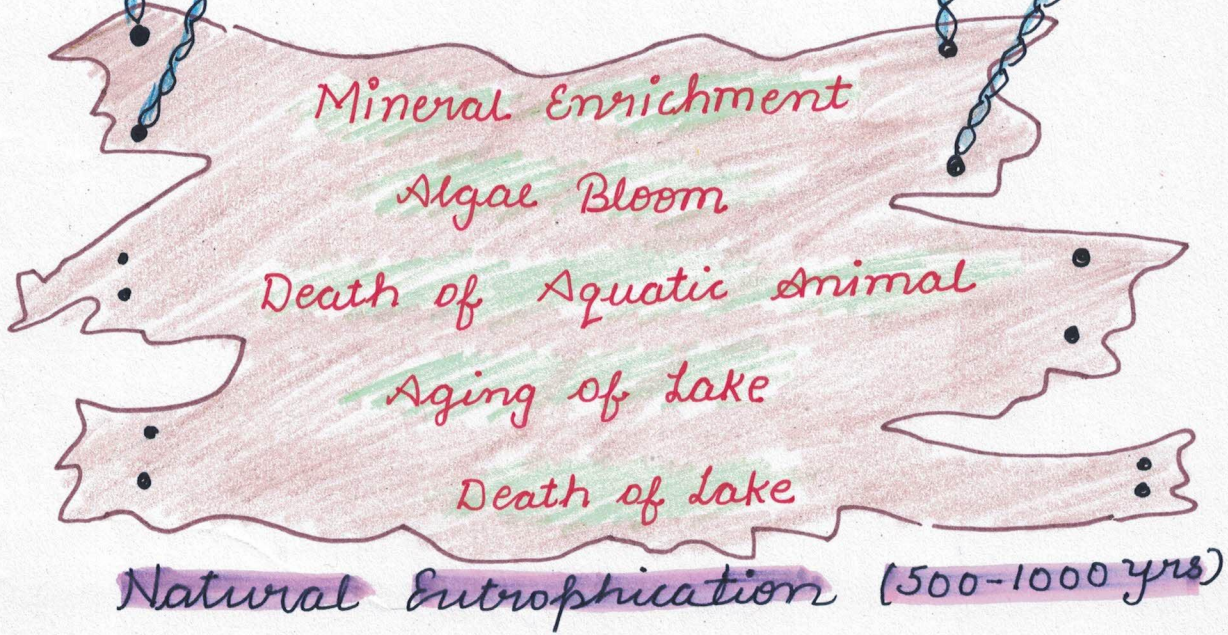 Mineral Enrichment
Algae Bloom
Death of Aquatic Animal
Aging of Lake
Death of Lake
Natural Eutrophication (500-1000 yrs)